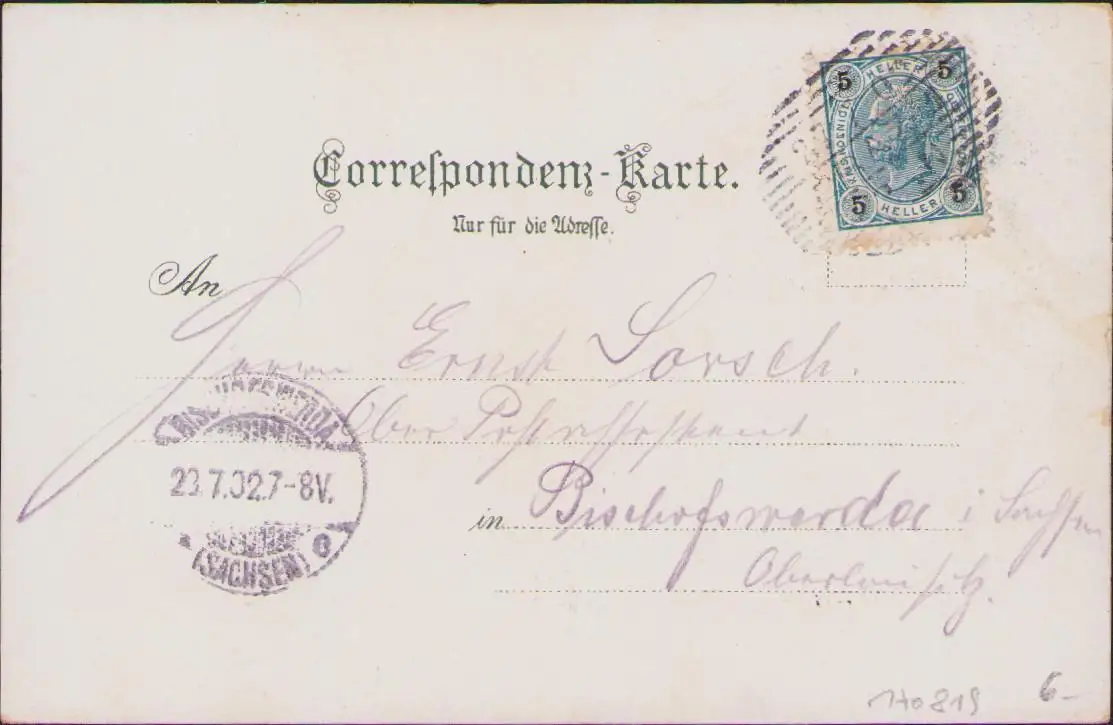 5 HELLER 5
5 HELLER 5
Correspondenz-Karte.
Nur für die Adresse.
An
Herrn Ernst Sorsch.
Ober Postassistent
BISCHOFSWERDA
23.7.02.7-8V.
(SACHSEN)
in Bischofswerda i Sachsen
Oberlausitz.
170819
6-